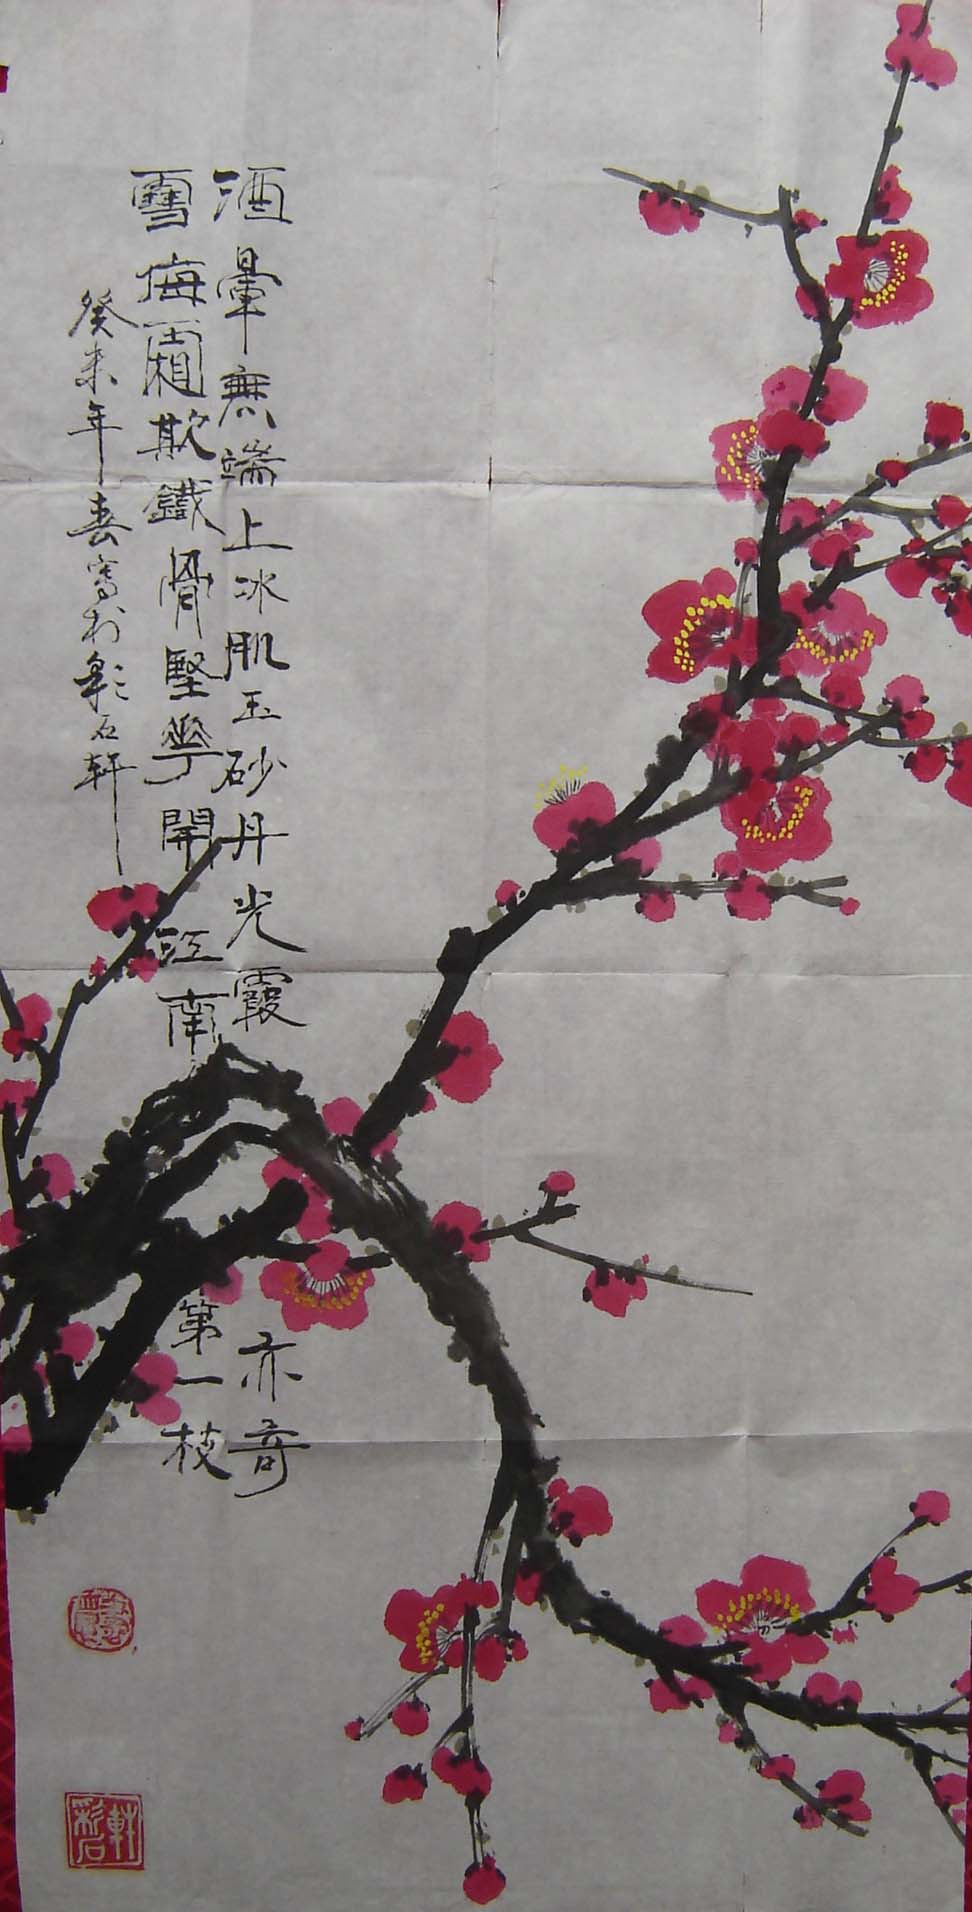 酒暈無端上冰肌玉砂丹光霞亦奇
雪侮霜欺鐵骨堅華開江南第一枝
癸未年春寫於彩石軒
彩石軒